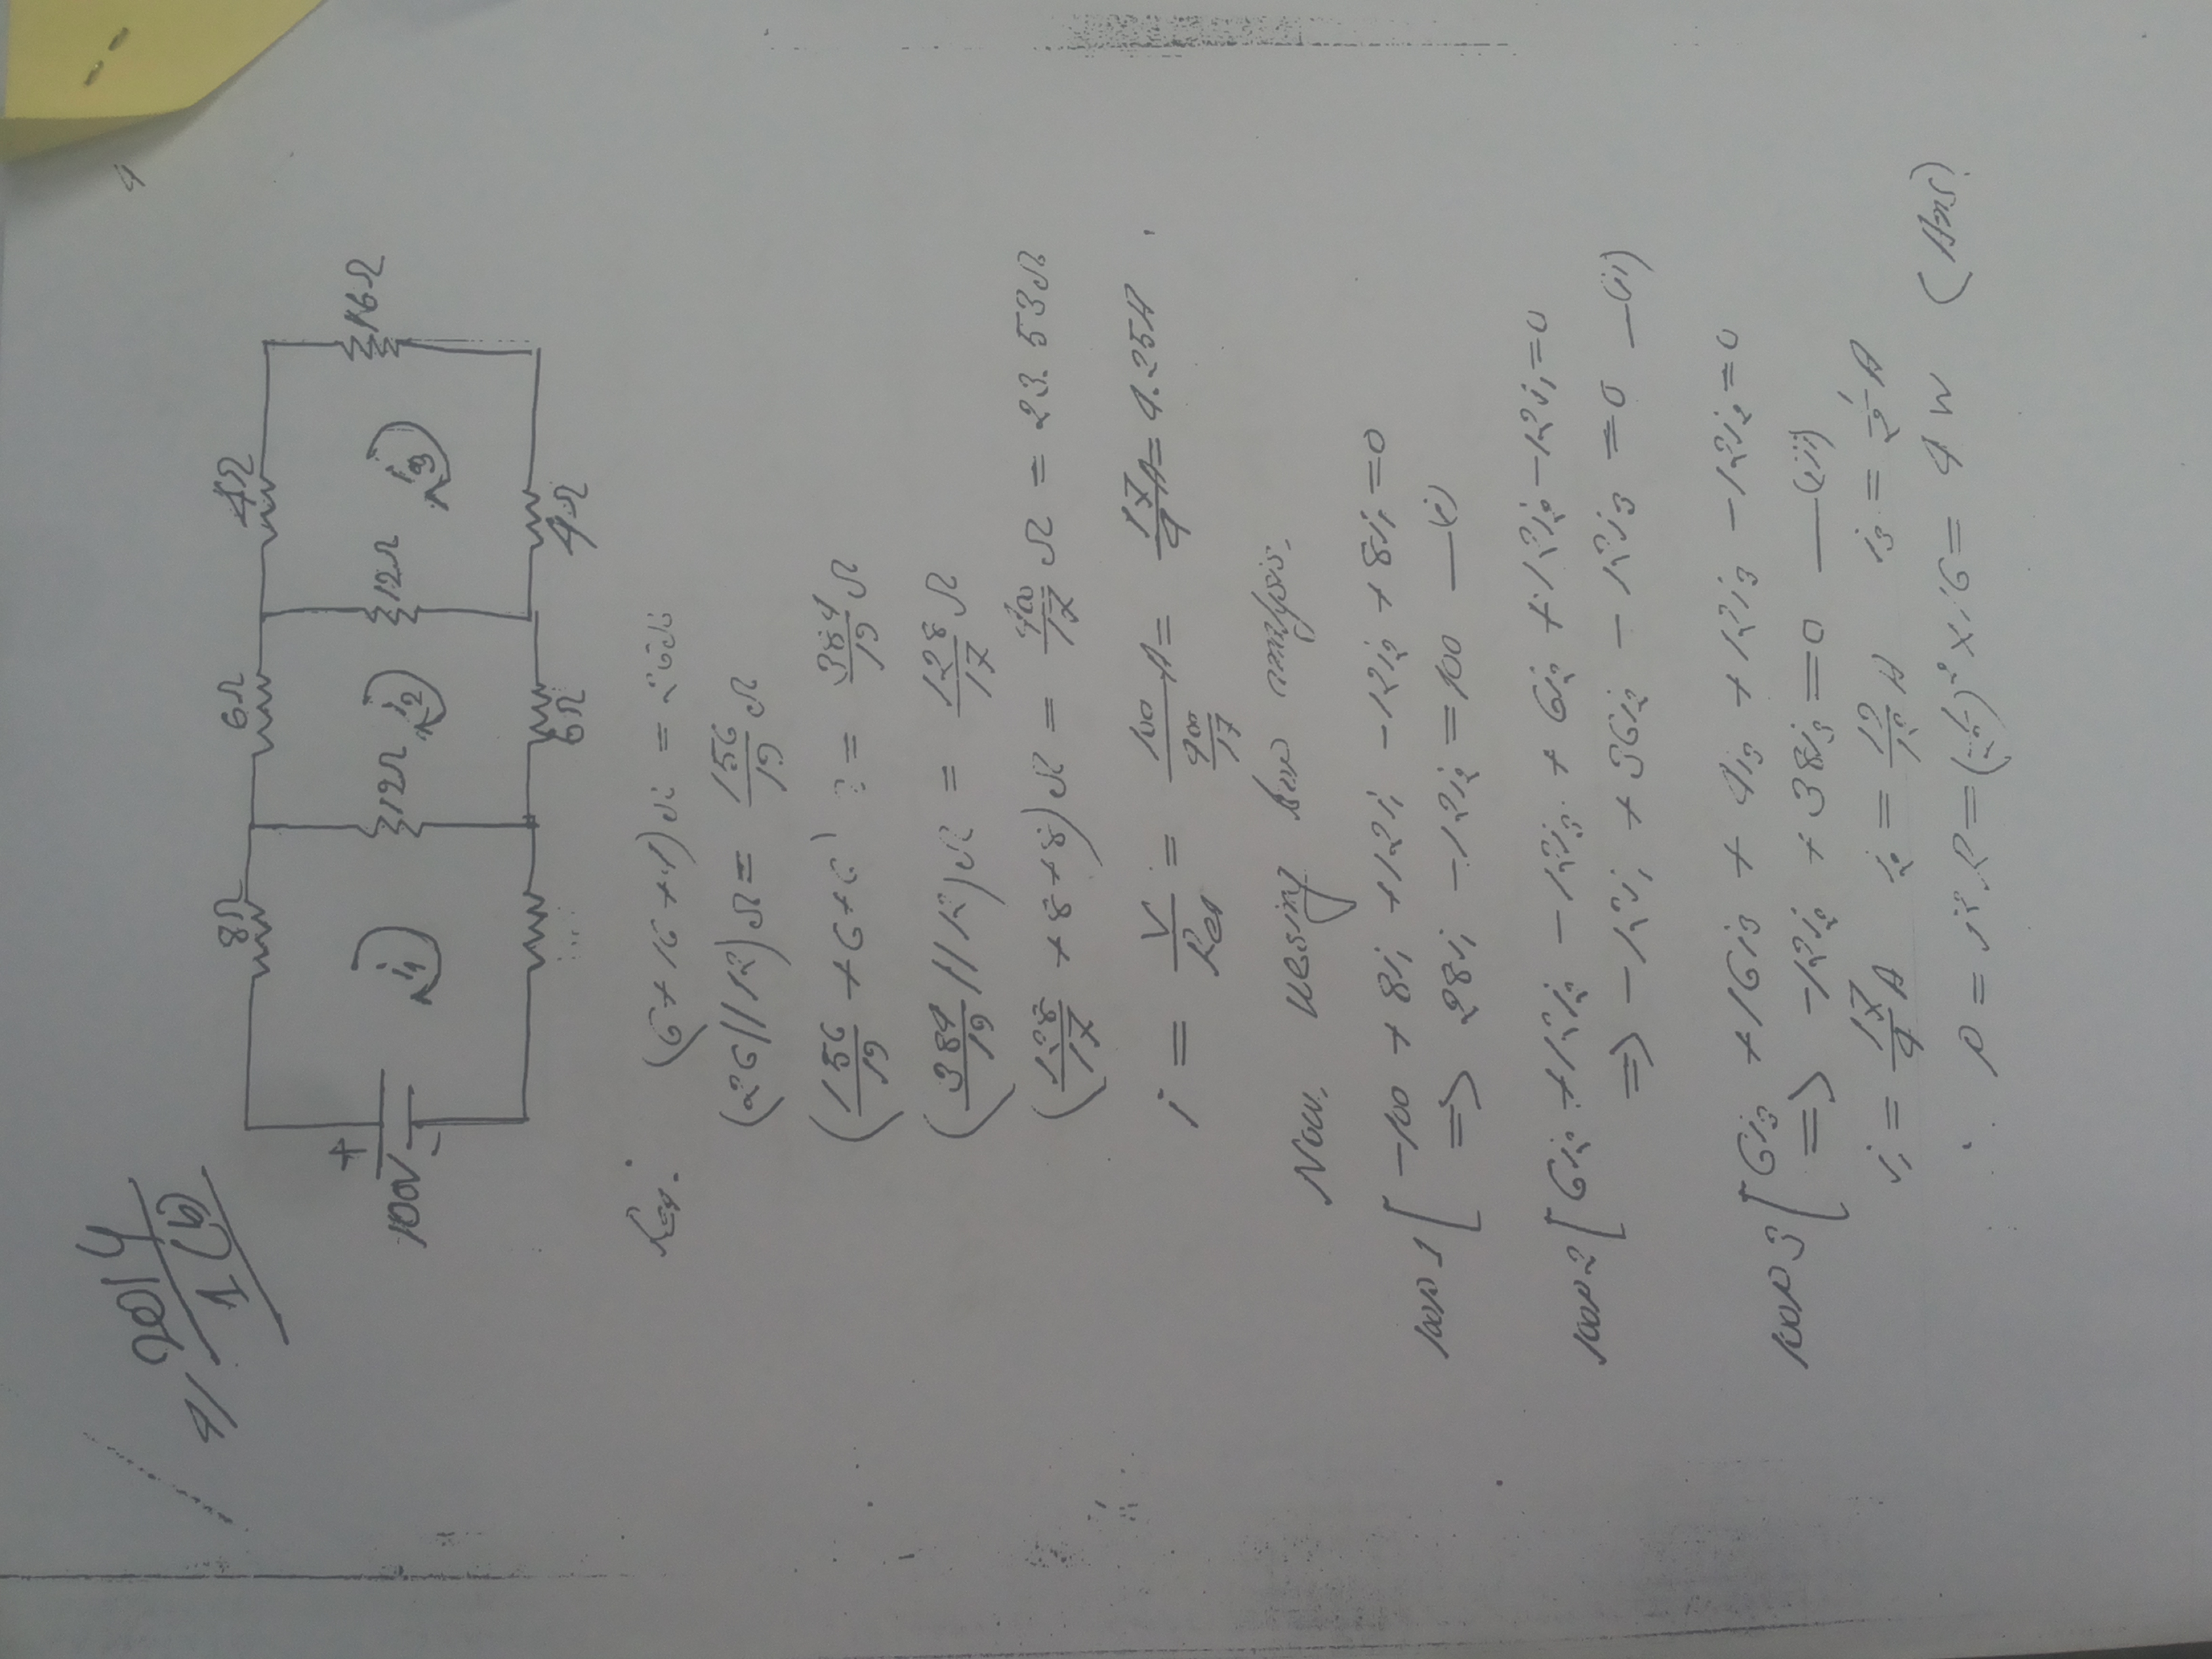 4
4/ 2014
1(b)
8Ω 6Ω 4Ω
+
100V
-
i1 12Ω i2 12Ω i3 16Ω
6Ω 4Ω
Req: (6+16+4)Ω = 26Ω
(26||12)Ω = 156/19 Ω
(156/19 + 6+6) = 384/19 Ω
(384/19 || 12)Ω = 128/17 Ω
(128/17 + 8+8)Ω = 400/17 Ω = 23.53Ω
i = V/Req = 100/(400/17) A = 17/4 A = 4.25A
Now, uesing loop analysis.
loop 1 [ -100 + 8i1 + 12i1 - 12i2 + 8i1 = 0
=> 28i1 - 12i2 = 100 —(i)
loop 2 [ 6i2 + 12i2 - 12i3 + 6i2 + 12i2 - 12i1 = 0
=> -12i1 + 36i2 - 12i3 = 0 —(ii)
loop 3 [ 6i3 + 16i3 + 4i3 + 12i3 - 12i2 = 0
=> -12i2 + 38i3 = 0 —(iii)
i1 = 17/4 A i2 = 19/12 A i3 = 1/2 A
∴ P = i²R = (1/2)² × 16 = 4 W (Ans)